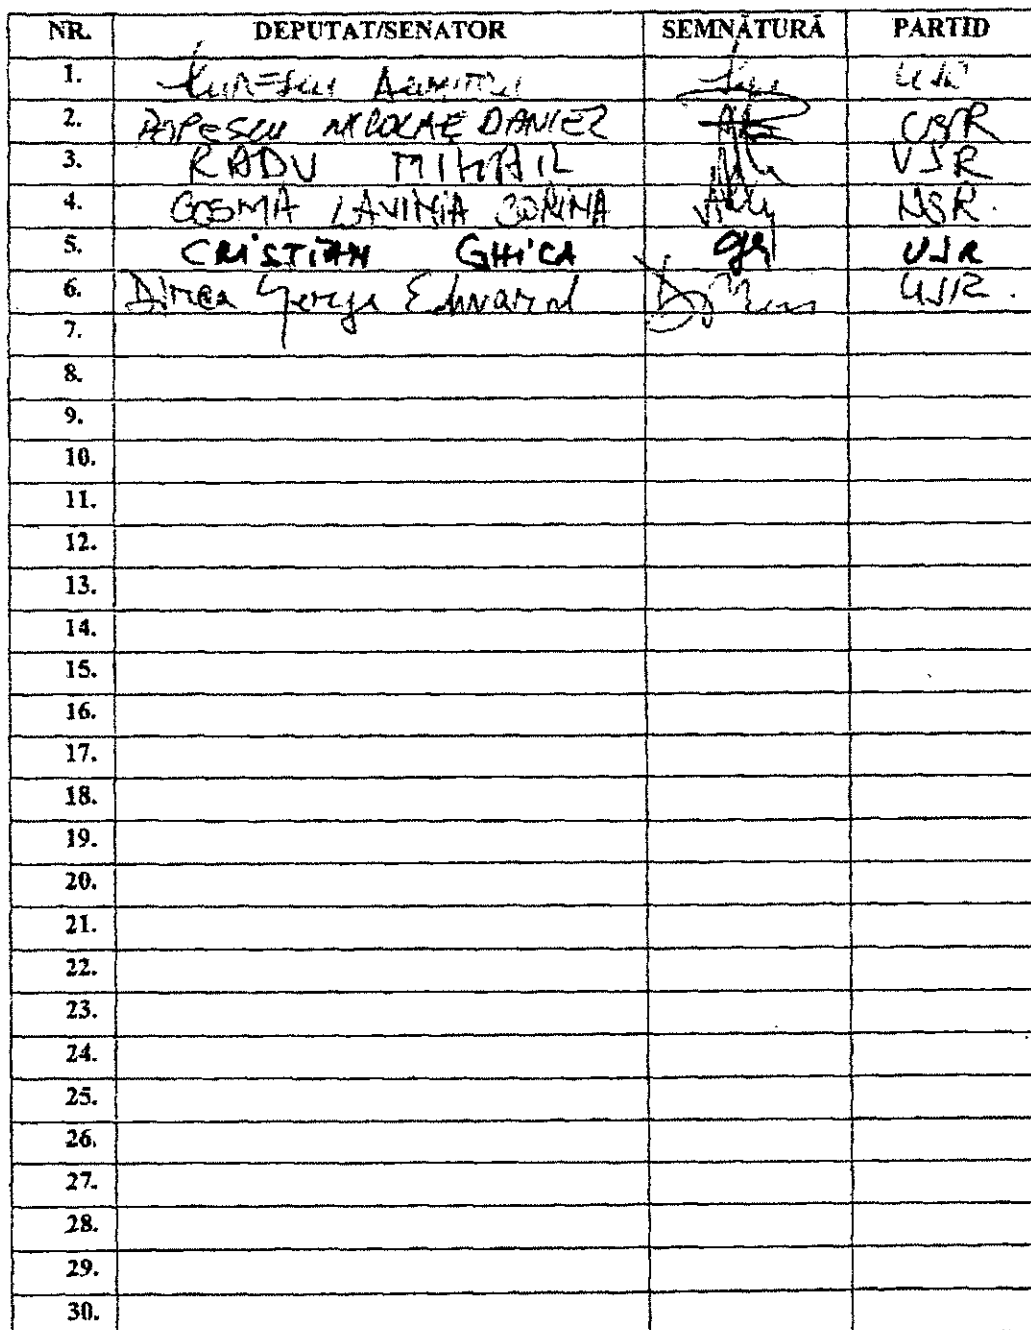 NR. DEPUTAT/SENATOR SEMNĂTURĂ PARTID
1. USR
2. POPESCU NICOLAE DANIEL USR
3. RADU MIHAIL USR
4. COSMA LAVINIA CORINA USR.
5. CRISTIAN GHICA USR
6. Dircă George Edward USR.
7.
8.
9.
10.
11.
12.
13.
14.
15.
16.
17.
18.
19.
20.
21.
22.
23.
24.
25.
26.
27.
28.
29.
30.